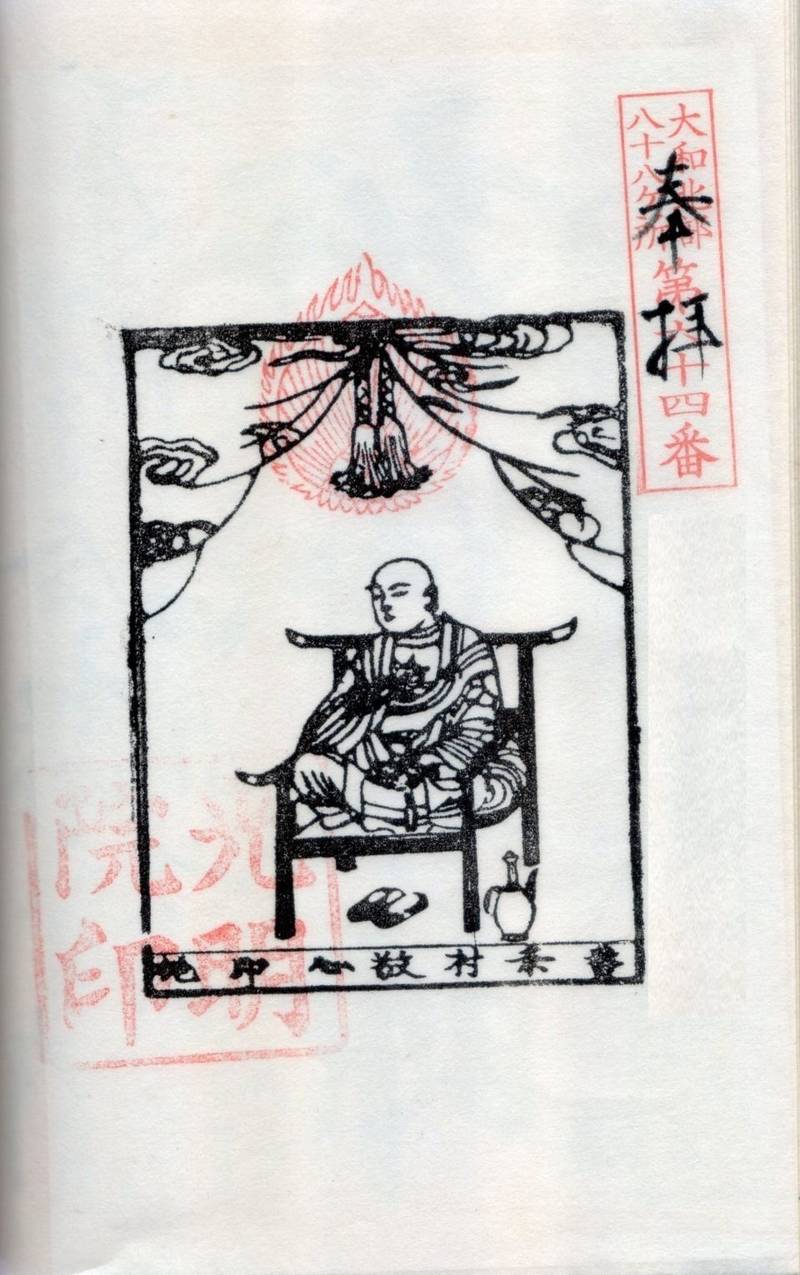 大和北部
八十八ケ所
第六十四番
奉拝
条村敬心印施
光明
院印